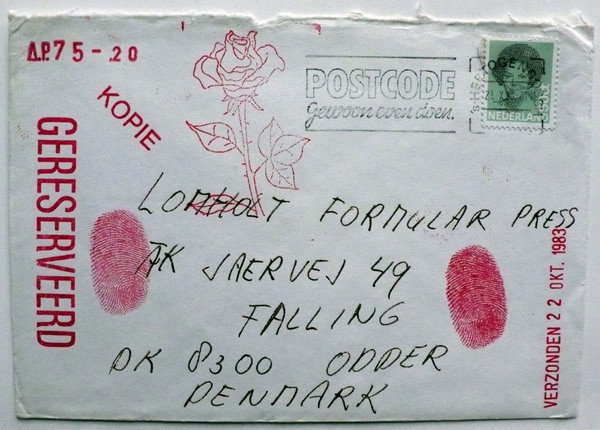 Δ.P.75-.20
KOPIE
GERESERVEERD
POSTCODE
Gewoon even doen.
NEDERLAND
LOMHOLT FORMULAR PRESS
JAERVEJ 49
FALLING
DK 8300 ODDER
DENMARK
VERZONDEN 22 OKT. 1983